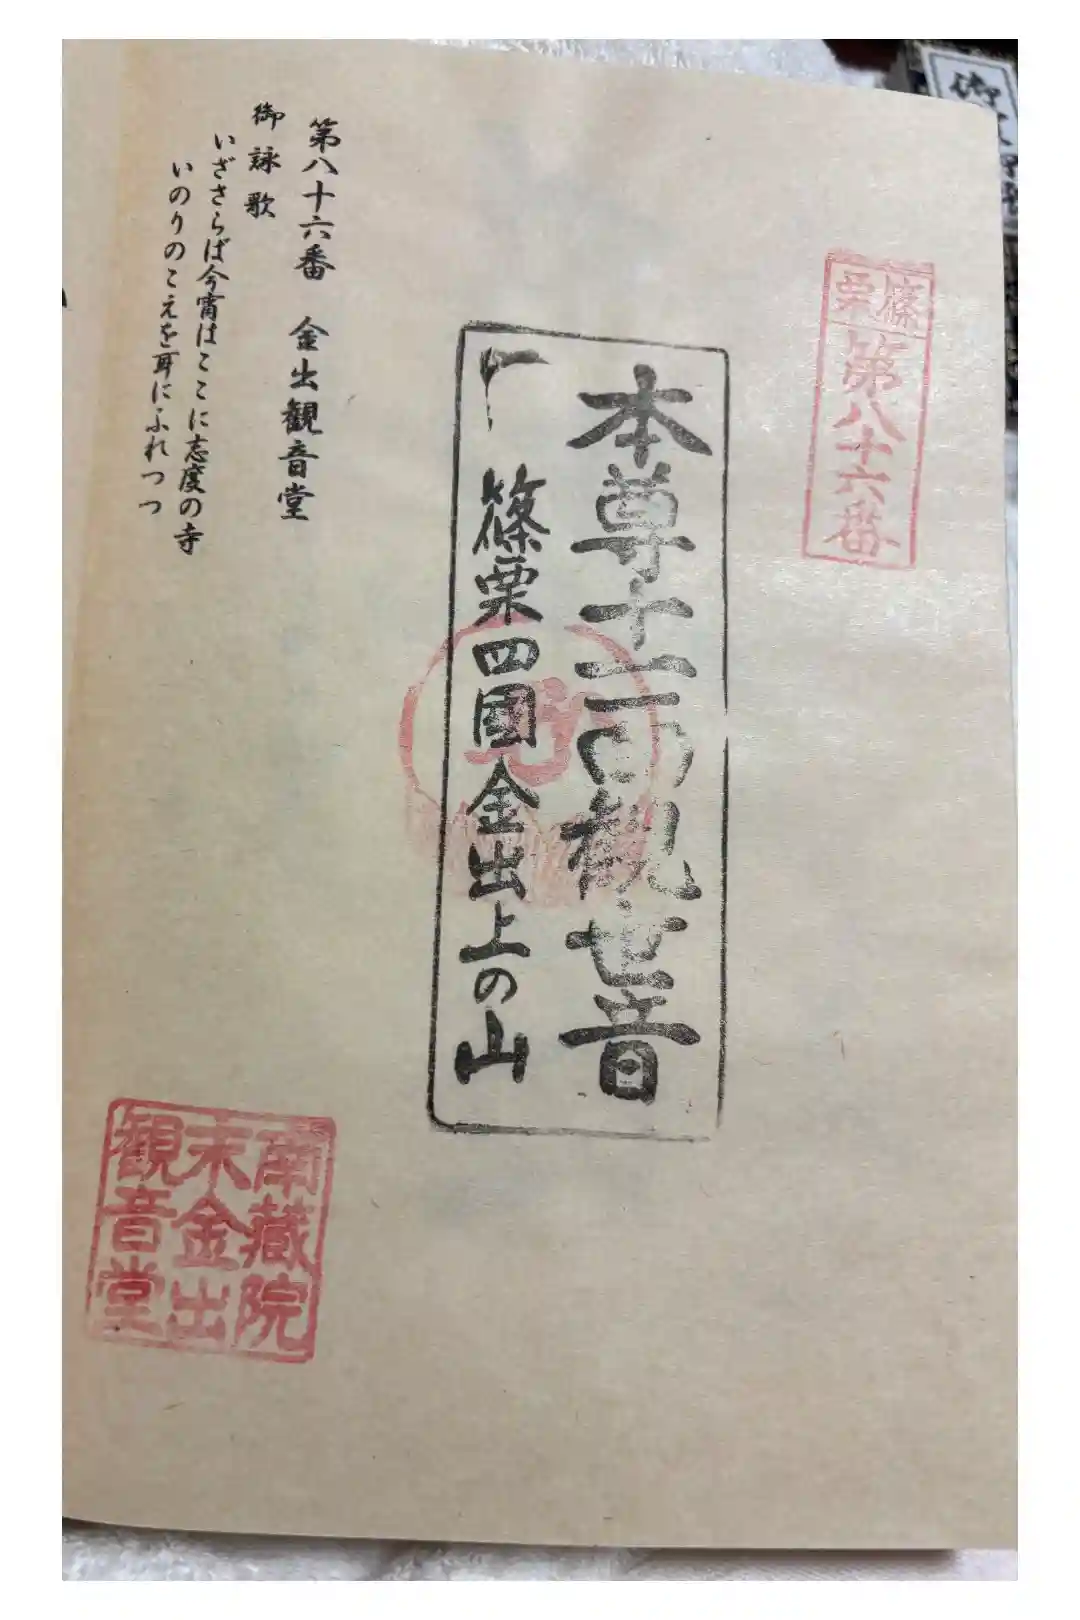 篠栗
第八十六番
本尊十一面観世音
篠栗四國金出上の山
第八十六番 金出観音堂
御詠歌
いざさらば今宵はここに志度の寺
いのりのこえを耳にふれつつ
南藏院
末金出
観音堂
御